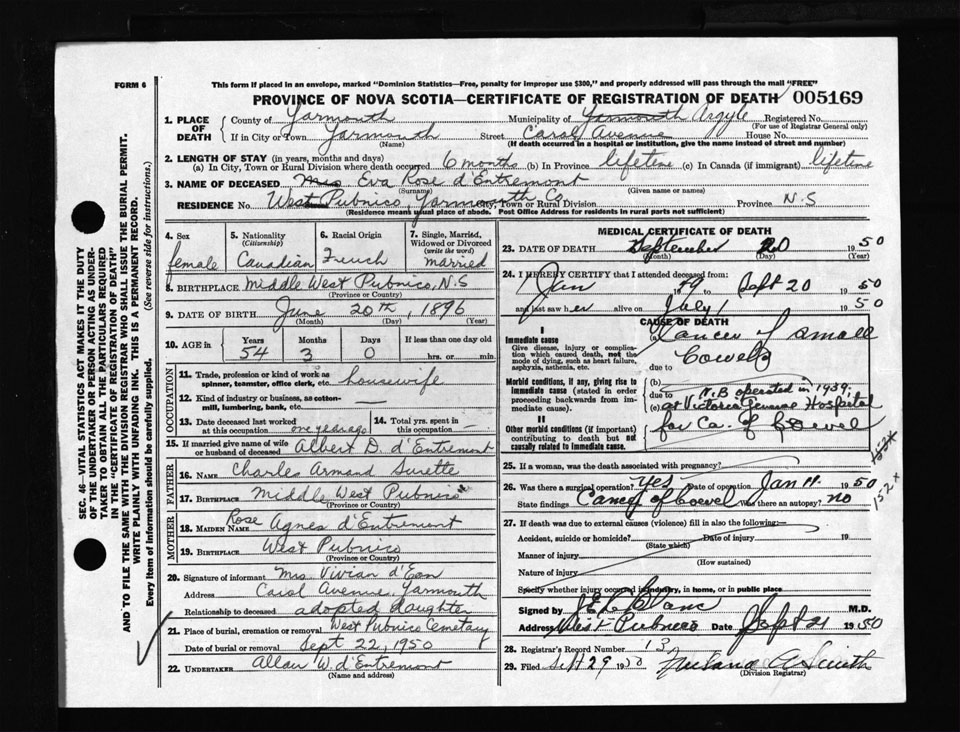 FORM 6
This form if placed in an envelope, marked "Dominion Statistics—Free, penalty for improper use $300," and properly addressed will pass through the mail "FREE"
PROVINCE OF NOVA SCOTIA—CERTIFICATE OF REGISTRATION OF DEATH 005169
1. PLACE OF DEATH County of Yarmouth Municipality of Yarmouth Argyle Registered No.
(For use of Registrar General only)
If in City or Town Yarmouth Street Carol Avenue House No.
(Name) (If death occurred in a hospital or institution, give the name instead of street and number)
2. LENGTH OF STAY (in years, months and days)
(a) In City, Town or Rural Division where death occurred 6 months (b) In Province lifetime (c) In Canada (if immigrant) lifetime
3. NAME OF DECEASED Mrs Eva Rose d'Entremont
(Surname) (Given name or names)
RESIDENCE No. West Pubnico, Yarmouth Co, Town or Rural Division Province N.S
(Residence means usual place of abode. Post Office Address for residents in rural parts not sufficient)
4. Sex female
5. Nationality (Citizenship) Canadian
6. Racial Origin French
7. Single, Married, Widowed or Divorced (write the word) married
8. BIRTHPLACE Middle West Pubnico, N.S
(Province or Country)
9. DATE OF BIRTH June 20th, 1896
(Month) (Day) (Year)
10. AGE Years Months Days If less than one day old
54 3 0 hrs. or min.
OCCUPATION
11. Trade, profession or kind of work as spinner, teamster, office clerk, etc. housewife
12. Kind of industry or business, as cotton-mill, lumbering, bank, etc.
13. Date deceased last worked at this occupation one year ago
14. Total yrs. spent in this occupation
15. If married give name of wife or husband of deceased Albert D. d'Entremont
FATHER
16. Name Charles Armand Surette
17. Birthplace Middle West Pubnico
(Province or Country)
MOTHER
18. Maiden Name Rose Agnes d'Entremont
19. Birthplace West Pubnico
(Province or Country)
20. Signature of informant Mrs Vivian d'Eon
Address Carol Avenue, Yarmouth
Relationship to deceased adopted daughter
21. Place of burial, cremation or removal West Pubnico Cemetary
Date of burial or removal Sept 22, 1950
22. UNDERTAKER Allan W. d'Entremont
(Name and address)
MEDICAL CERTIFICATE OF DEATH
23. DATE OF DEATH September 20 1950
(Month) (Day) (Year)
24. I HEREBY CERTIFY that I attended deceased from:
1 Jan 1949 Sept 20 1950
and last saw her alive on July 1 1950
CAUSE OF DEATH
I
Immediate cause
Give disease, injury or complication which caused death, not the mode of dying, such as heart failure, asphyxia, asthenia, etc.
(a) Cancer of small bowel
due to
Morbid conditions, if any, giving rise to immediate cause (stated in order proceeding backwards from immediate cause).
(b)
due to
(c)
N.B operated in 1939.
at Victoria General Hospital
for Ca. of bowel
II
Other morbid conditions (if important) contributing to death but not causally related to immediate cause.
25. If a woman, was the death associated with pregnancy?
26. Was there a surgical operation? Yes Date of operation Jan 11 1950
State findings Cancer of bowel Was there an autopsy? no
152x
27. If death was due to external causes (violence) fill in also the following:—
Accident, suicide or homicide? Date of injury 19
(State which)
Manner of injury
(How sustained)
Nature of injury
Specify whether injury occurred in industry, in home, or in public place
Signed by J E LeBlanc M.D.
Address West Pubnico Date Sept 21 1950
28. Registrar's Record Number 13
29. Filed Sept 29 1950 A Smith
(Division Registrar)
SEC. 46—VITAL STATISTICS ACT MAKES IT THE DUTY
OF THE UNDERTAKER OR PERSON ACTING AS UNDER-
TAKER TO OBTAIN ALL THE PARTICULARS REQUIRED
IN THE "CERTIFICATE OF REGISTRATION OF DEATH"
AND TO FILE THE SAME WITH THE DIVISION REGISTRAR WHO SHALL ISSUE THE BURIAL PERMIT.
WRITE PLAINLY WITH UNFADING INK. THIS IS A PERMANENT RECORD.
Every Item of Information should be carefully supplied. (See reverse side for instructions.)